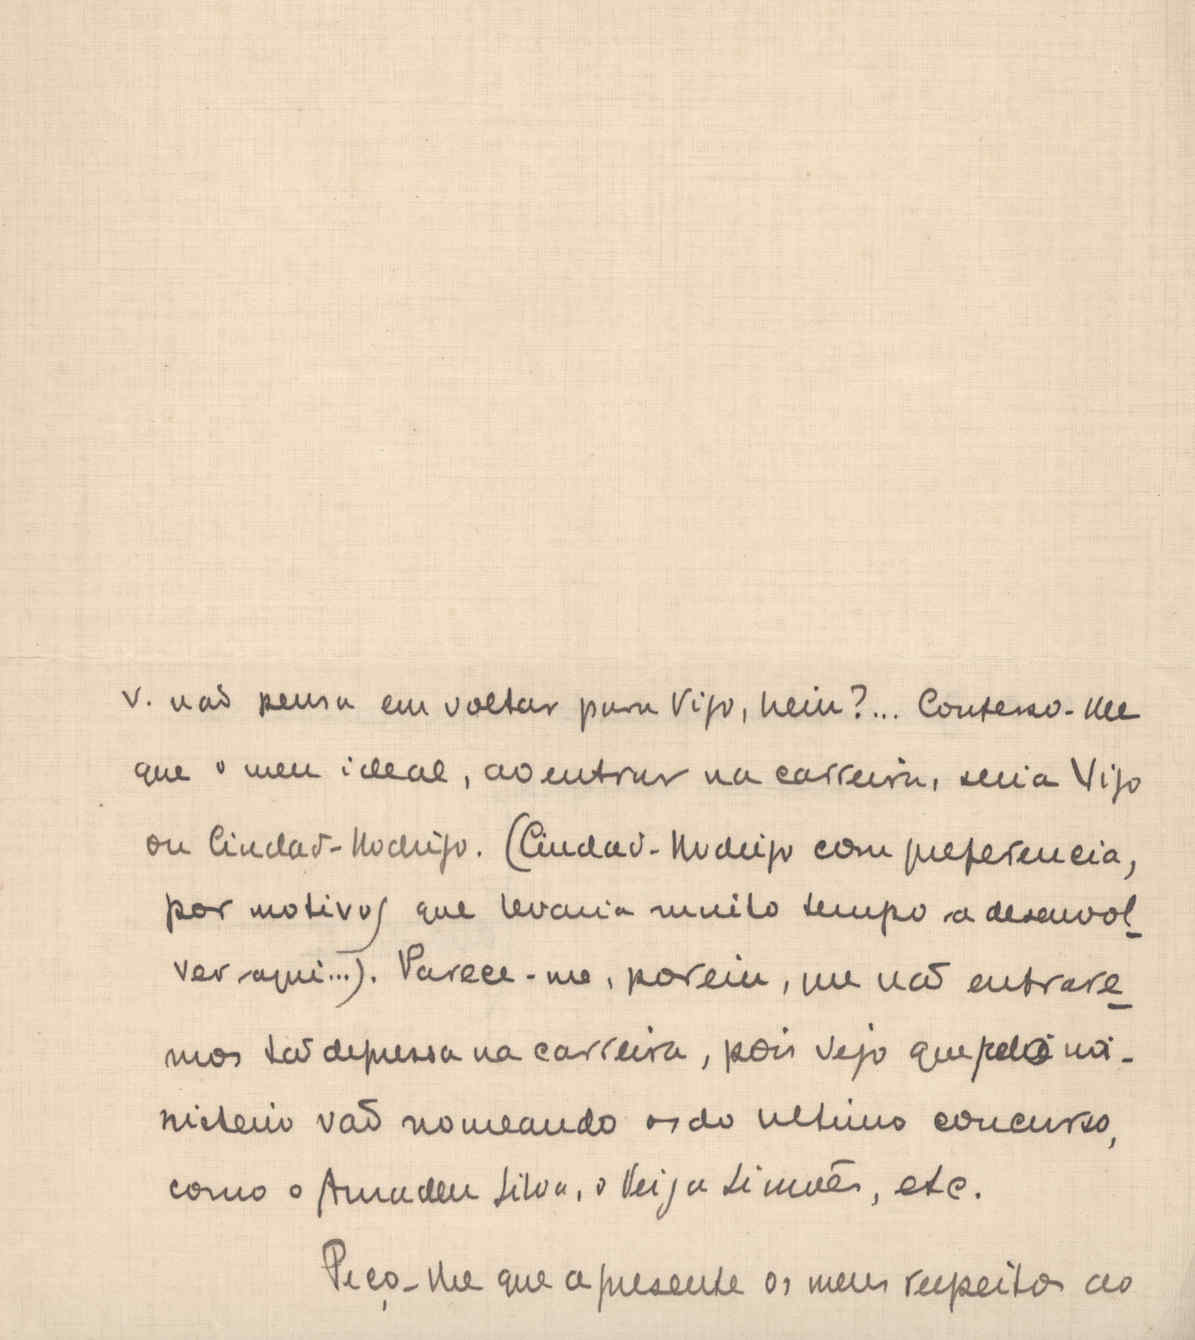 v. não pensa em voltar para Vigo, hein?... Confesso-lhe
que o meu ideal, ao entrar na carreira, seria Vigo
ou Ciudad-Rodrigo. (Ciudad-Rodrigo com preferencia,
por motivos que levaria muito tempo a desenvol-
ver aqui...). Parece-me, porem, que não entrare-
mos tão depressa na carreira, pois vejo que pelo mi-
nisterio vão nomeando os do ultimo concurso,
como o Amadeu Silva, o Veiga Simões, etc.
Peço-lhe que apresente os meus respeitos ao